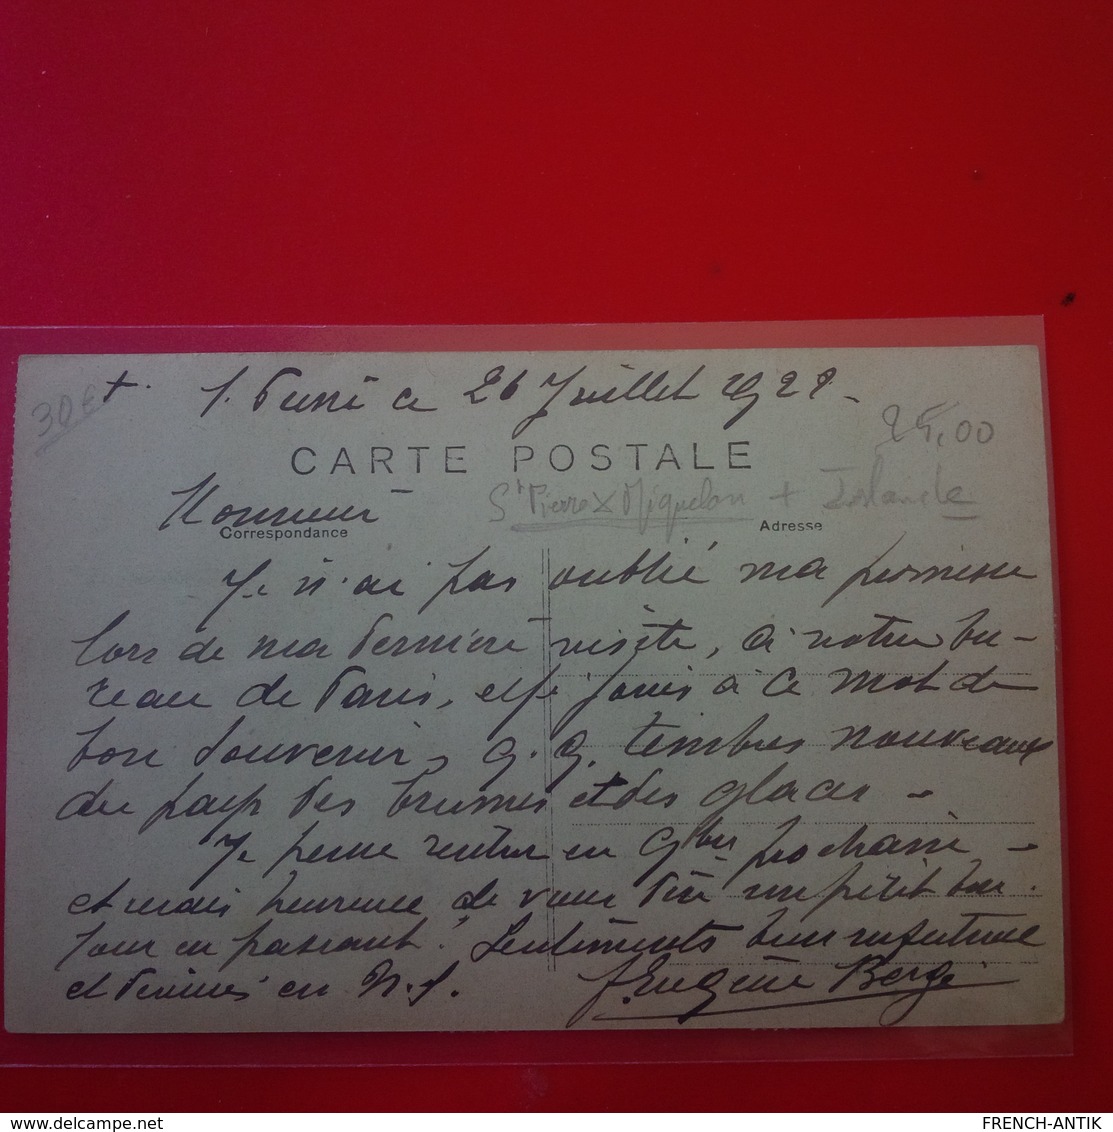 30 €
+. S. Pierre ce 26 Juillet 1922 -
25,00
CARTE POSTALE
St Pierre x Miquelon + Islande
Monsieur
Correspondance
Adresse
Je n'ai pas oublié ma promesse
lors de ma dernière visite, à votre bu-
reau de Paris, et je joins à ce mot de
bon souvenir, q. q. timbres nouveaux
du pays des brumes et des glaces -
Je pense rentrer en 9bre prochain -
et serais heureuse de vous dire un petit bon-
jour en passant. Sentiments bien respectueux
et dévoués en N. S.
Eugène Bergé
FRENCH-ANTIK
www.delcampe.net